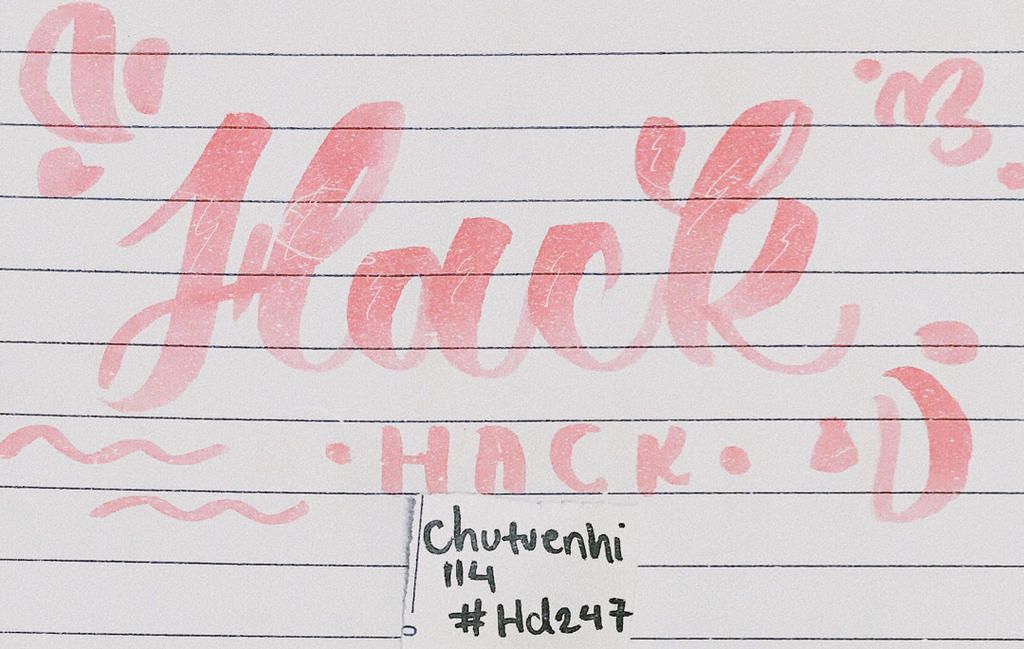 Hack
• HACK •
Chutuenhi
114
#Hd247